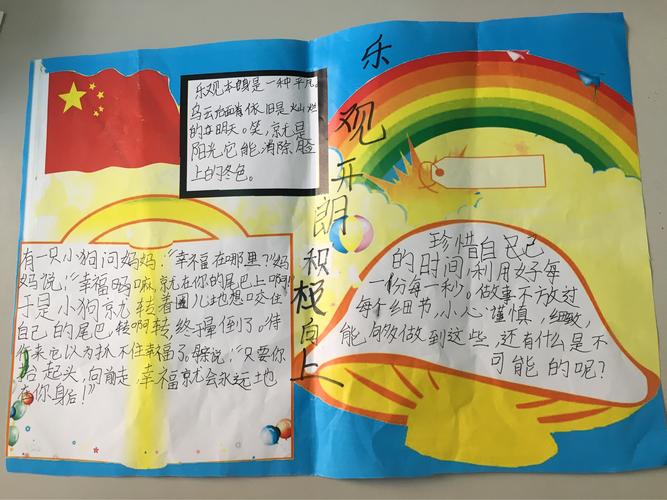 乐观本身是一种平凡。
乌云后面依旧是灿烂
的明天。笑,就是
阳光,它能消除脸
上的冬色。
乐观开朗积极向上
有一只小狗问妈妈:“幸福在哪里?”妈
妈说:“幸福吗嘛,就在你的尾巴上啊!”
于是小狗就转着圈儿地想咬住
自己的尾巴,转啊转,终于晕倒了。待
来它以为抓不住幸福了。妈说:“只要你
抬起头,向前走,幸福就会永远地
在你身后!”
珍惜自己
的时间,利用好每
一份每一秒。做事不放过
每个细节,小心谨慎,细致,
能够做到这些,还有什么是不
可能的呢?